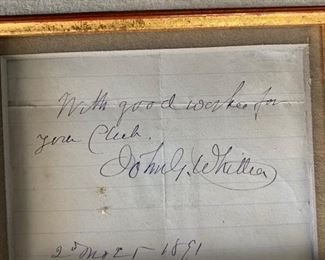 With good wishes for
your Club.
John G. Whittier
2d Mo 25 1891